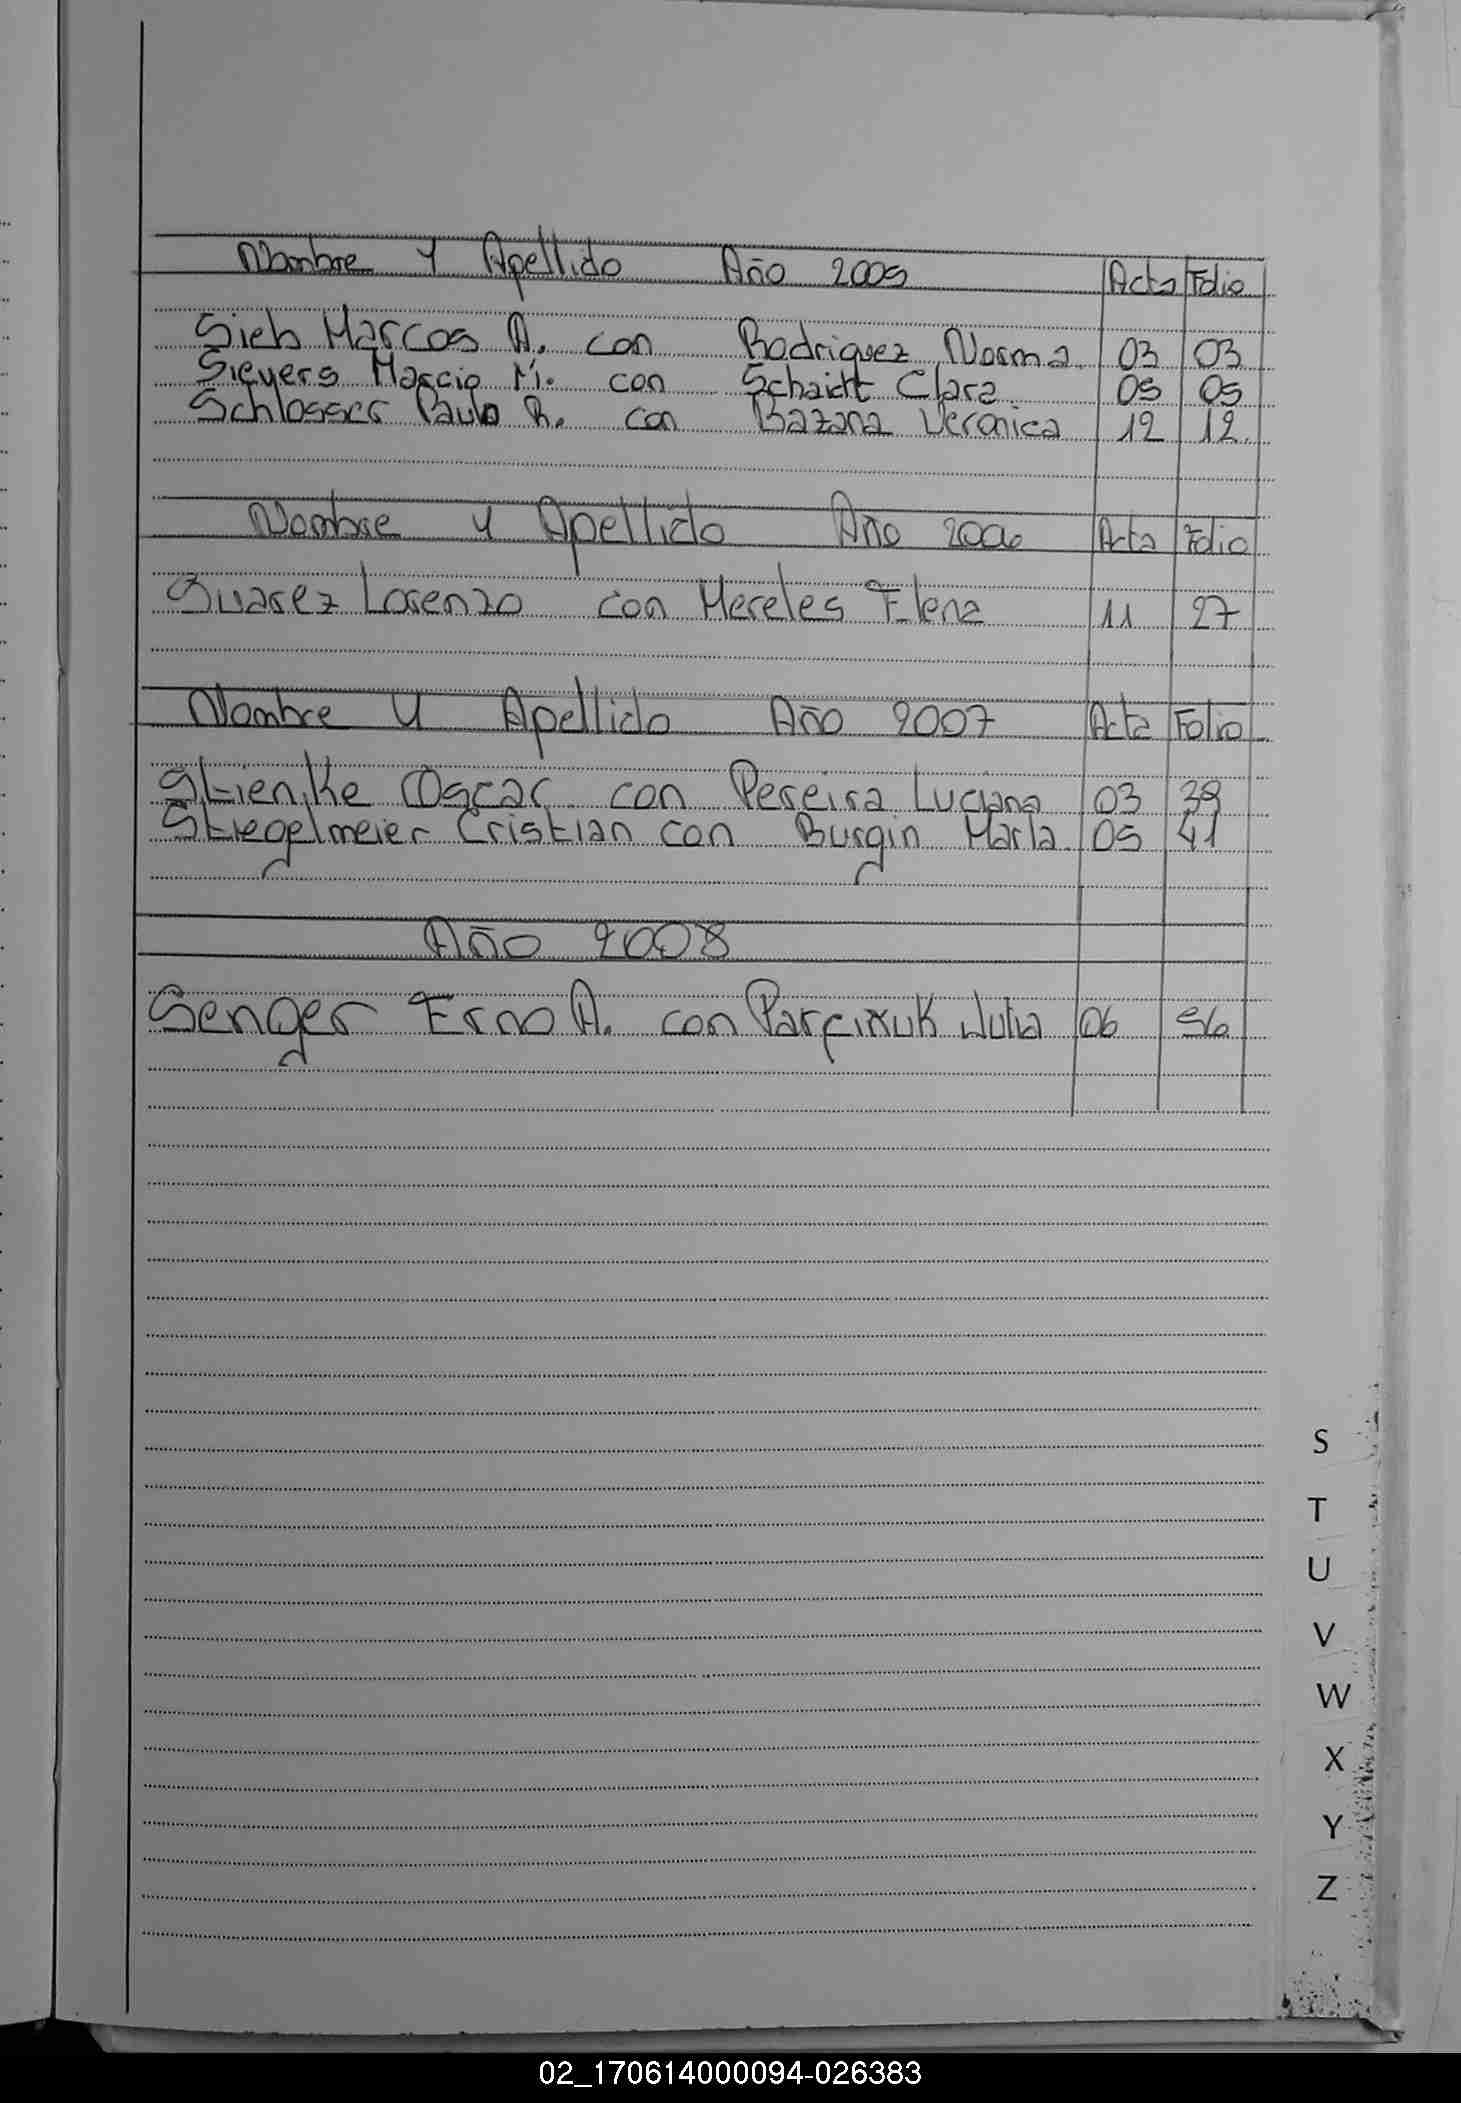 Nombre Y Apellido Año 2005 Acta Folio
Sieb Marcos A. con Rodriguez Norma 03 03
Sieyers Marcio M. con Schaidt Clara 05 05
Schlosser Paulo R. con Bazana Veronica 12 12
Nombre y Apellido Año 2006 Acta Folio
Suarez Lorenzo con Mereles Elena 11 27
Nombre y Apellido Año 2007 Acta Folio
Stienke Oscar con Pereira Luciana 03 39
Stiegelmeier Cristian con Burgin Marla 05 41
Año 2008
Senger Erno A. con Julia 06 56
S
T
U
V
W
X
Y
Z
02_170614000094-026383